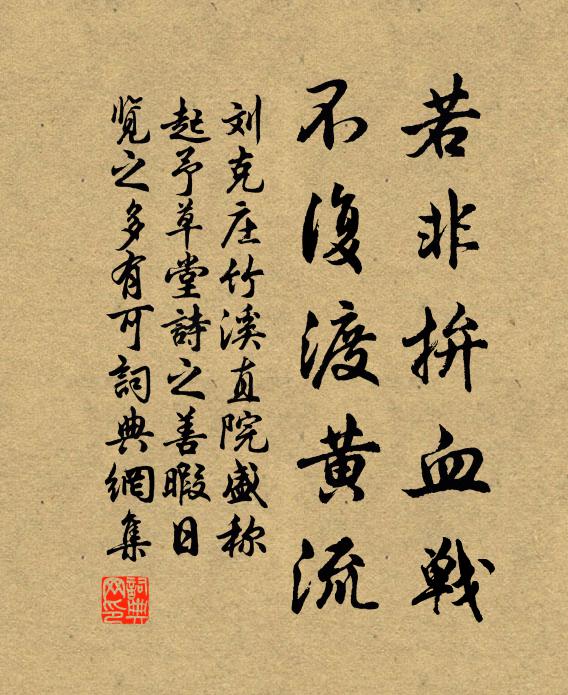 若非拚血戰
不復渡黄流
刘克庄竹溪直院盛称
起予草堂詩之善暇日
覧之多有可詞典網集
詞典网印